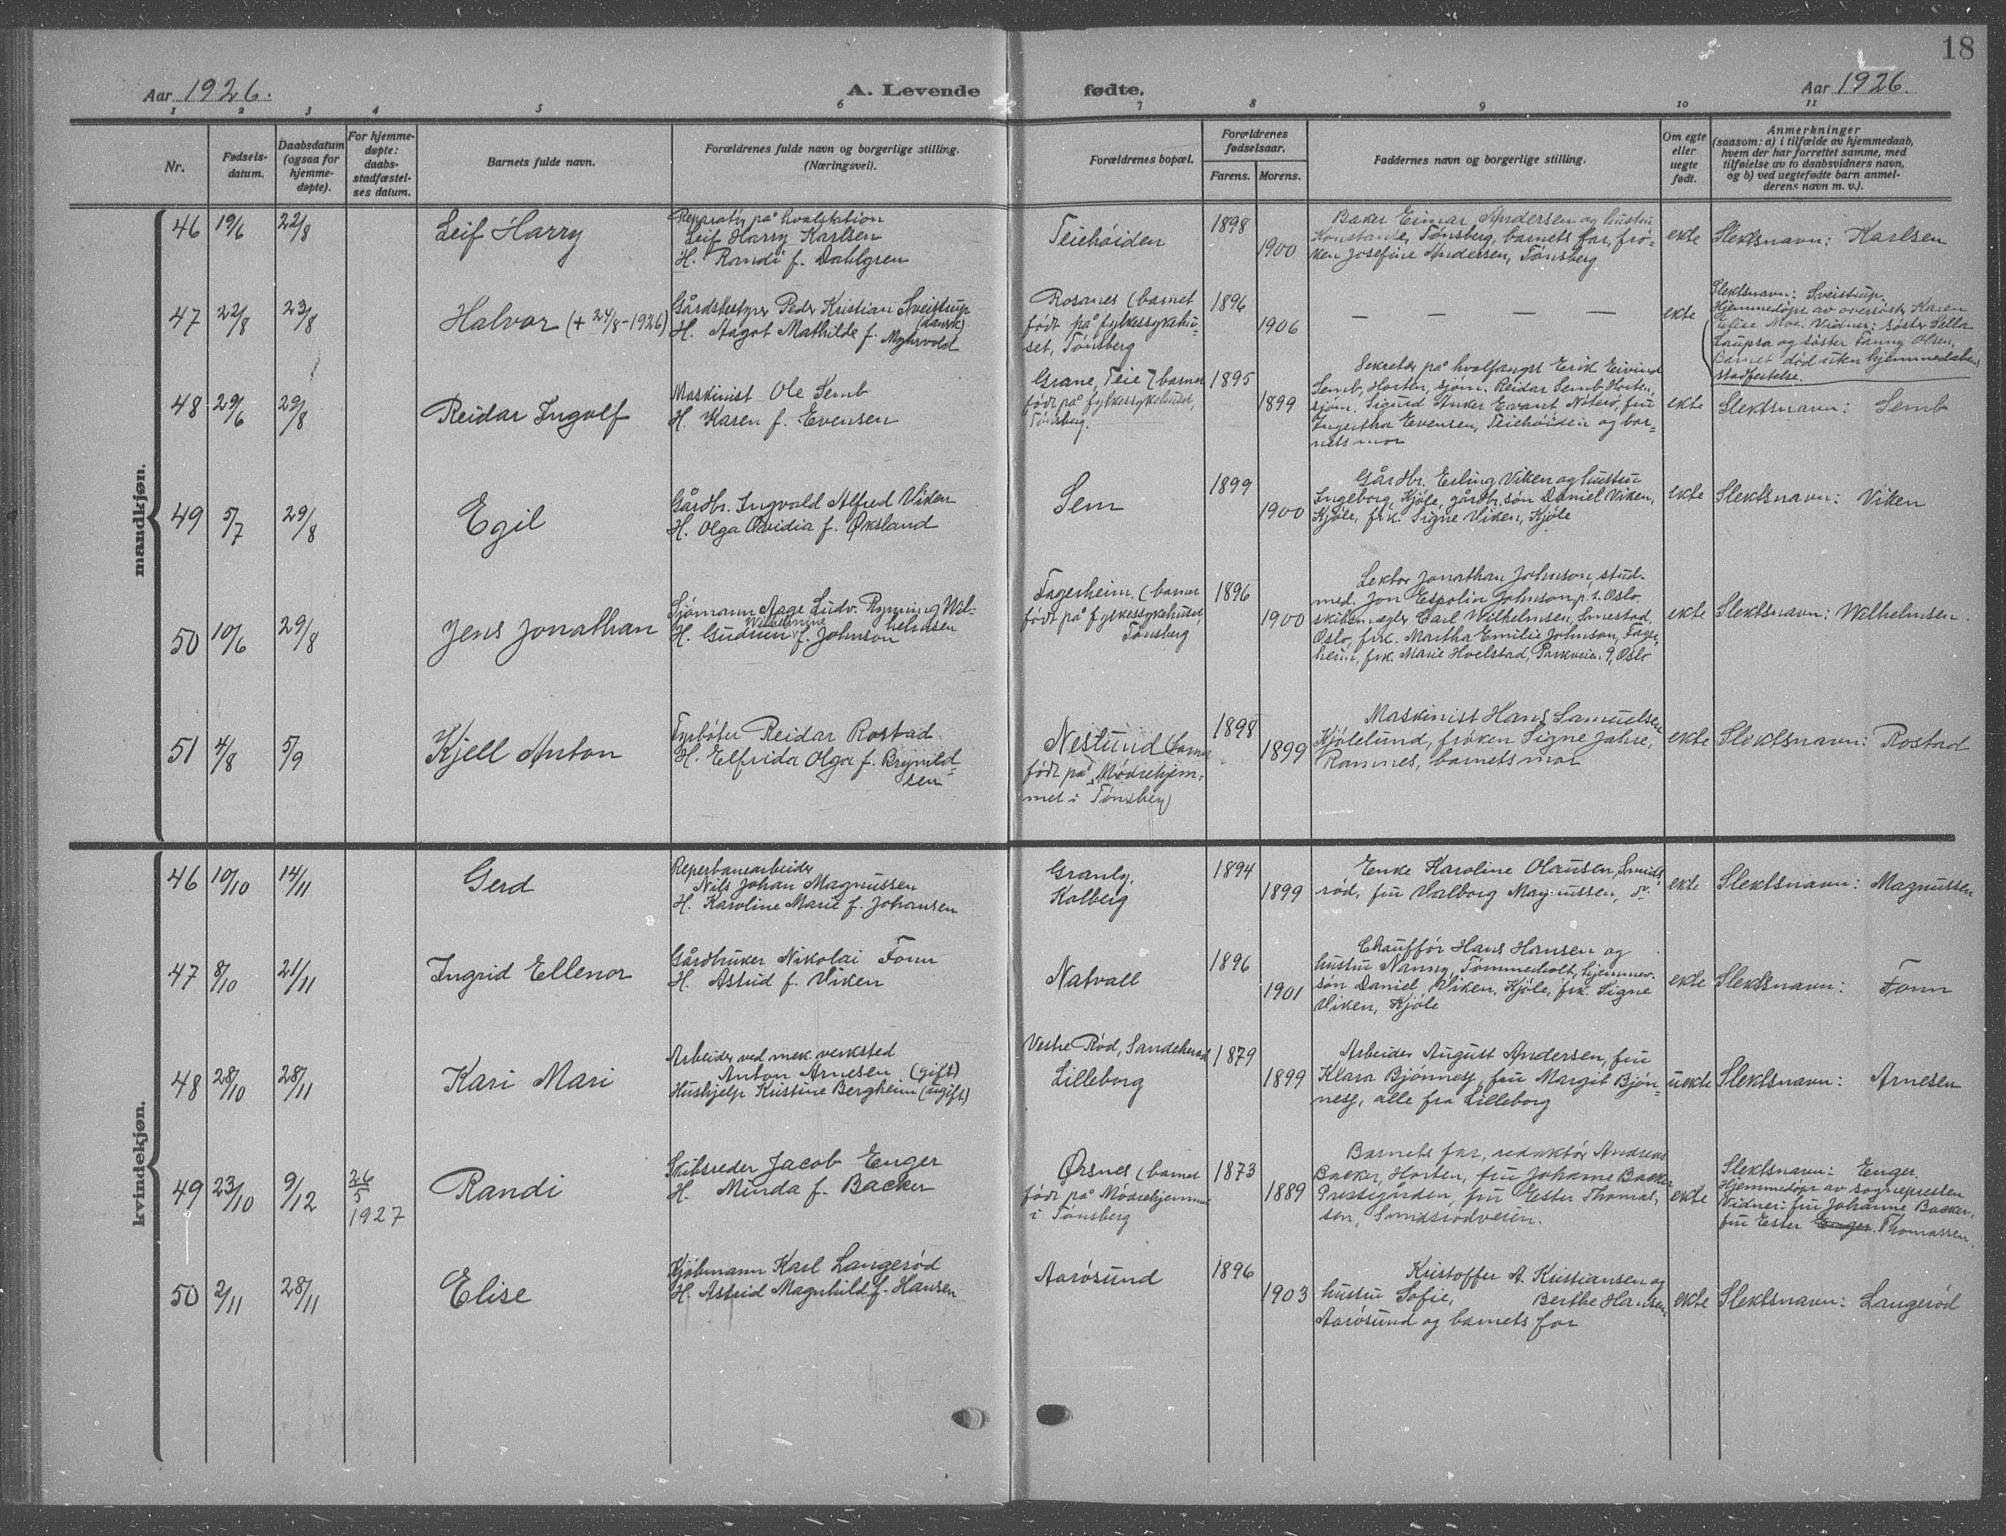 18
Aar 1926.
A. Levende
fødte.
Aar 1926.
1 2 3 4 5 6 7 8 9 10 11
Nr.
Fødsels-
datum.
Daabsdatum
(ogsaa for
hjemme-
døpte).
For hjemme-
døpte:
daabs-
stadfæstel-
ses datum.
Barnets fulde navn.
Forældrenes fulde navn og borgerlige stilling.
(Næringsvei).
Forældrenes bopæl.
Forældrenes
fødselsaar.
Farens. Morens.
Faddernes navn og borgerlige stilling.
Om egte
eller
uegte
født.
Anmerkninger
(saasom: a) i tilfælde av hjemmedaab,
hvem der har forrettet samme, med
tilføielse av to daabsvidners navn,
og b) ved uegtefødte barn anmel-
derens navn m. v.).
mandkjøn.
46 19/6 22/8
Leif Harry
Reparatör på hvalstation
Leif Harry Karlsen
H. Randi f. Dahlgren
Teiehöiden
1898
1900
Baker Eimar Andersen og hustru
Tönsberg, barnets far, frö-
ken Josefine Andersen, Tönsberg
ekte
Slektsnavn: Karlsen
47 22/8 23/8
Halvor (+ 24/8-1926)
Gårdsbestyrer Peder Kristian Sveistrup
(dansk)
H. Aagot Mathilde f. Myhrvold
Rosanes (barnet
födt på fylkessykehu-
set, Tönsberg
1896
1906
— — — — —
ekte
Slektsnavn: Sveistrup.
Hjemmedöpt av oversöster Karen
Elise Moe. Vidner: söster Sella
Laupsa og söster Fanny Olsen.
Barnet död uten hjemmedåbens
stadfestelse.
48 29/6 29/8
Reidar Ingolf
Maskinist Ole Semb
H. Karen f. Evensen
Grane, Teie (barnet
födt på fylkessykehuset,
Tönsberg.
1895
1899
Sekretær på hvalfangst Erik Eivind
Semb, Horten, sjöm. Reidar Semb, Horten,
sjöm. Sigurd Anker Evant, Nöterö, fru
Ingertha Evensen, Teiehöiden og bar-
nets mor
ekte
Slektsnavn: Semb
49 5/7 29/8
Egil
Gårdbr. Ingvald Alfred Viken
H. Olga Ovidia f. Öksland
Sem
1899
1900
Gårdbr. Erling Viken og hustru
Ingeborg, Kjöle, gårdbr. sön Daniel Viken,
Kjöle, frk. Signe Viken, Kjöle
ekte
Slektsnavn: Viken
50 10/6 29/8
Jens Jonathan
Sjömann Aage Ludv. Rynning Wil-
helmsen
Wilhelmine
H. Gudrun f. Johnson
Fagerheim, (barnet
födt på fylkessykehuset,
Tönsberg
1896
1900
Lektor Jonathan Johnson, stud.
med. Jon Espolin Johnson, p. t. Oslo
skibsmægler Carl Wilhelmsen, Smestad,
Oslo, frk. Martha Emilie Johnson, Fager-
heim, frk. Marie Hoelstad, Parkveien 9, Oslo
ekte
Slektsnavn: Wilhelmsen.
51 4/8 5/9
Kjell Anton
Fyrböter Reidar Rostad
H. Elfrida Olga f. Brynild-
sen
Neslund (barnet
födt på Mödrehjem-
met i Tönsberg)
1898
1899
Maskinist Hans Samuelsen
Kjölelund, fröken Signe Jahre,
Ramnes, barnets mor
ekte
Slektsnavn: Rostad
kvindekjøn.
46 10/10 14/11
Gerd
Reperbanearbeider
Nils Johan Magnussen
H. Karoline Marie f. Johansen
Granly,
Kolberg
1894
1899
Enke Karoline Olausen, Smids-
röd, fru Valborg Magnussen, do.
ekte
Slektsnavn: Magnussen
47 8/10 21/11
Ingrid Ellenor
Gårdbruker Nikolai Fonn
H. Astrid f. Viken
Natvall
1896
1901
Chaufför Hans Hansen og
hustru Nanny, Tömmerholt, hjemmev.
sön Daniel Viken, Kjöle, frk. Signe
Viken, Kjöle
ekte
Slektsnavn: Fonn
48 28/10 28/11
Kari Mari
Arbeider ved mek. verksted
Anton Arnesen (gift)
Hushjelp Kristine Bergheim (ugift)
Vestre Röd, Sandeherad
Lilleborg
1879
1899
Arbeider August Andersen, fru
Klara Bjönnesj, fru Margit Bjön-
nesj, alle fra Lilleborg
uekte
Slektsnavn: Arnesen
49 23/10 9/12 26/5 1927
Randi
Skibsreder Jacob Enger
H. Minda f. Backer
Örsnes (barnet
födt på Mödrehjemmet
i Tönsberg
1873
1889
Barnets far, redaktör Andreas
Backer, Horten, fru Johanne Backer
Prestegården, fru Ester Thomas-
sen, Smidsrödveien.
ekte
Slektsnavn: Enger.
Hjemmedöpt av sognepresten
Vidner: fru Johanne Backer,
fru Ester Enger. Thomassen.
50 2/11 28/11
Elise
Kjöbmann Karl Langeröd
H. Astrid Magnhild f. Hansen
Aarösund
1896
1903
Kristoffer A. Kristiansen og
hustru Sofie, Berthe Hansen,
Aarösund og barnets far
ekte
Slektsnavn: Langeröd